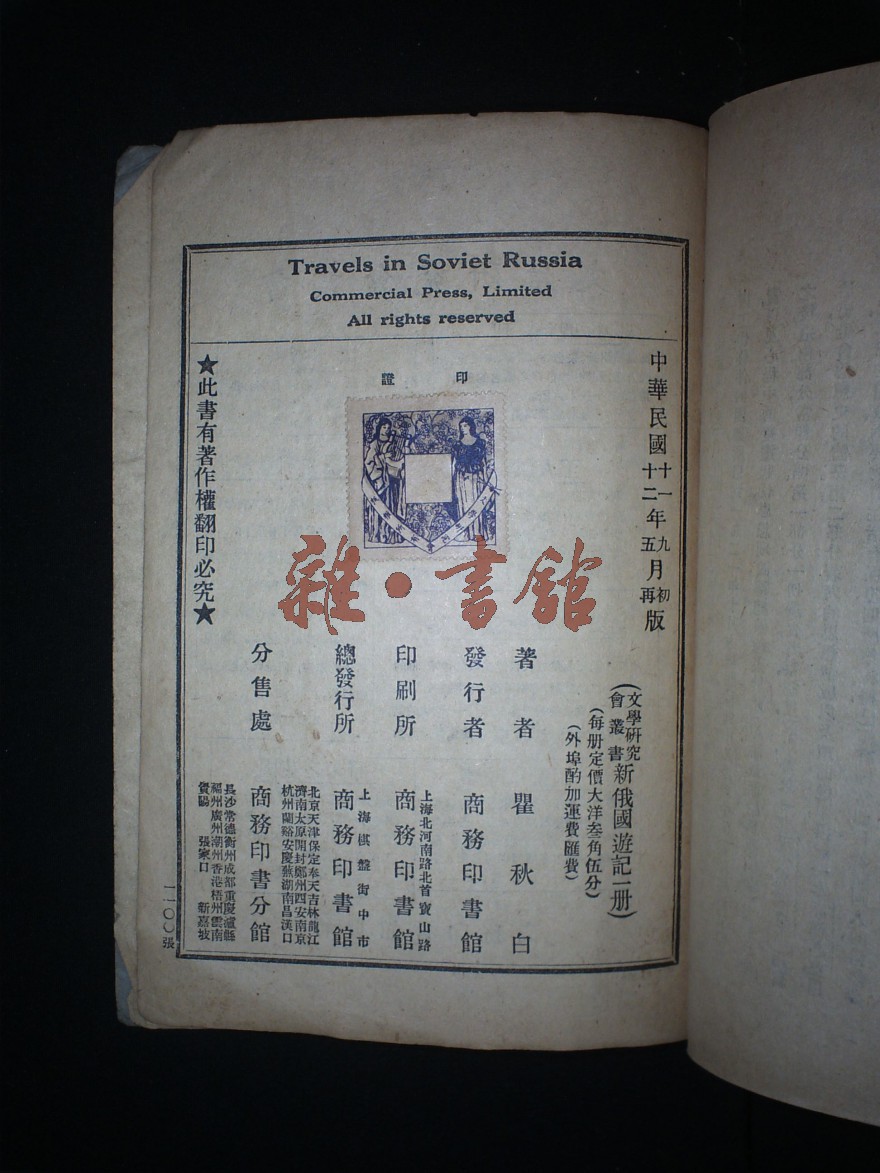 Travels in Soviet Russia
Commercial Press, Limited
All rights reserved
中華民國十一年九月初版
十二年五月再版
印證
(文學研究會叢書新俄國遊記一册)
(每册定價大洋叁角伍分)
(外埠酌加運費匯費)
著者 瞿秋白
發行者 商務印書館
上海北河南路北首寶山路
印刷所 商務印書館
上海棋盤街中市
總發行所 商務印書館
北京天津保定奉天吉林龍江
濟南太原開封鄭州西安南京
杭州蘭谿安慶蕪湖南昌漢口
分售處 商務印書分館
長沙常德衡州成都重慶瀘縣
福州廣州潮州香港梧州雲南
貴陽 張家口 新嘉坡
★此書有著作權翻印必究★
一一〇〇張
雜·書館